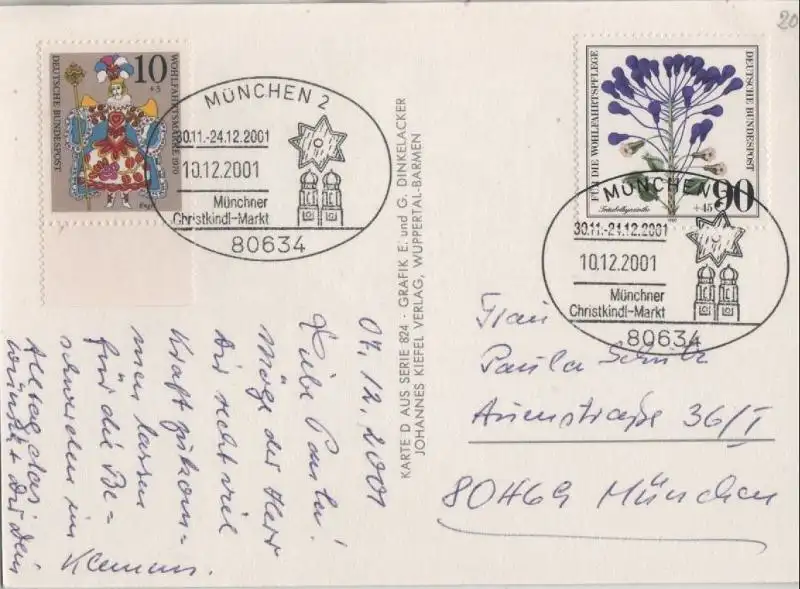 20
10
+5
WOHLFAHRTSMARKE 1970
DEUTSCHE BUNDESPOST
MÜNCHEN 2
30.11.-24.12.2001
10.12.2001
Münchner
Christkindl-Markt
80634
FÜR DIE WOHLFAHRTSPFLEGE
DEUTSCHE BUNDESPOST
90
+45
Traubelhyazinthe
1980
MÜNCHEN
30.11.-24.12.2001
10.12.2001
Münchner
Christkindl-Markt
80634
KARTE D AUS SERIE 824 · GRAFIK E. und G. DINKELACKER
JOHANNES KIEFEL VERLAG, WUPPERTAL-BARMEN
07.12.2001
Liebe Paula!
Möge der Herr
Dir recht viel
Kraft zukom-
men lassen
für die Be-
schwerden im
Alltag, das
wünscht Dir Dein
Klemens.
Frau
Paula Schulz
Auenstraße 36/I
80469 München